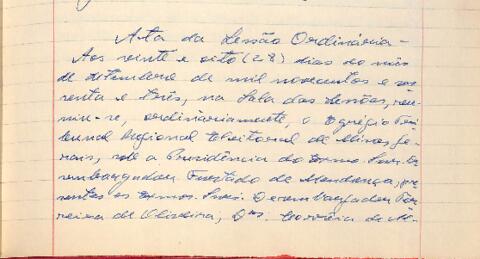 Ata da Sessão Ordinária -
Aos vinte e oito (28) dias do mês
de setembro de mil novecentos e ses-
senta e três, na Sala das Sessões, reu-
niu-se, ordinariamente, o Egrégio Tri-
bunal Regional Eleitoral de Minas Ge-
rais, sob a Presidência do Exmo. Snr. De-
sembargador Furtado de Mendonça, pre-
sentes os Exmos. Snrs. Desembargador Fer-
reira de Oliveira, Drs. Corrêia de